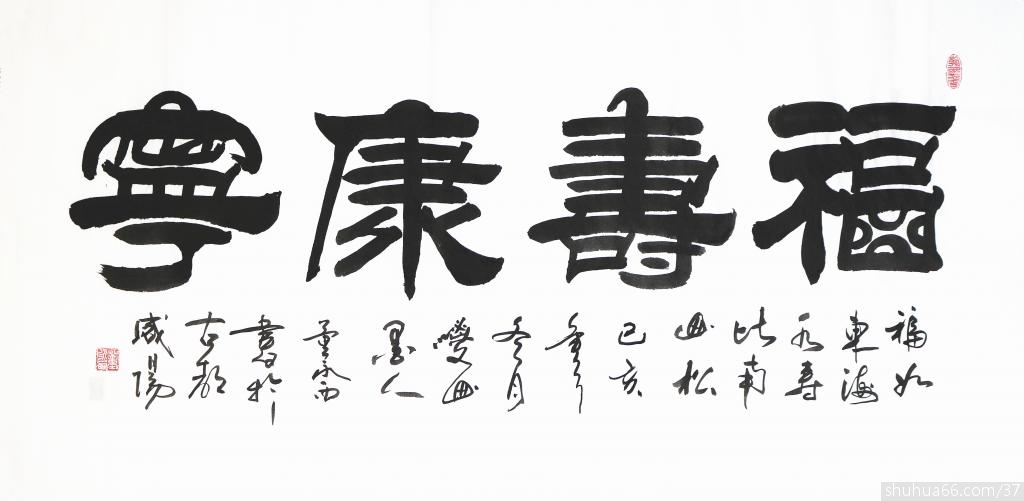 福壽康寧
福如
東海
水寿
比南
山松
己亥
年
冬月
山
墨人
書於
古都
咸陽
shuhua66.com/37